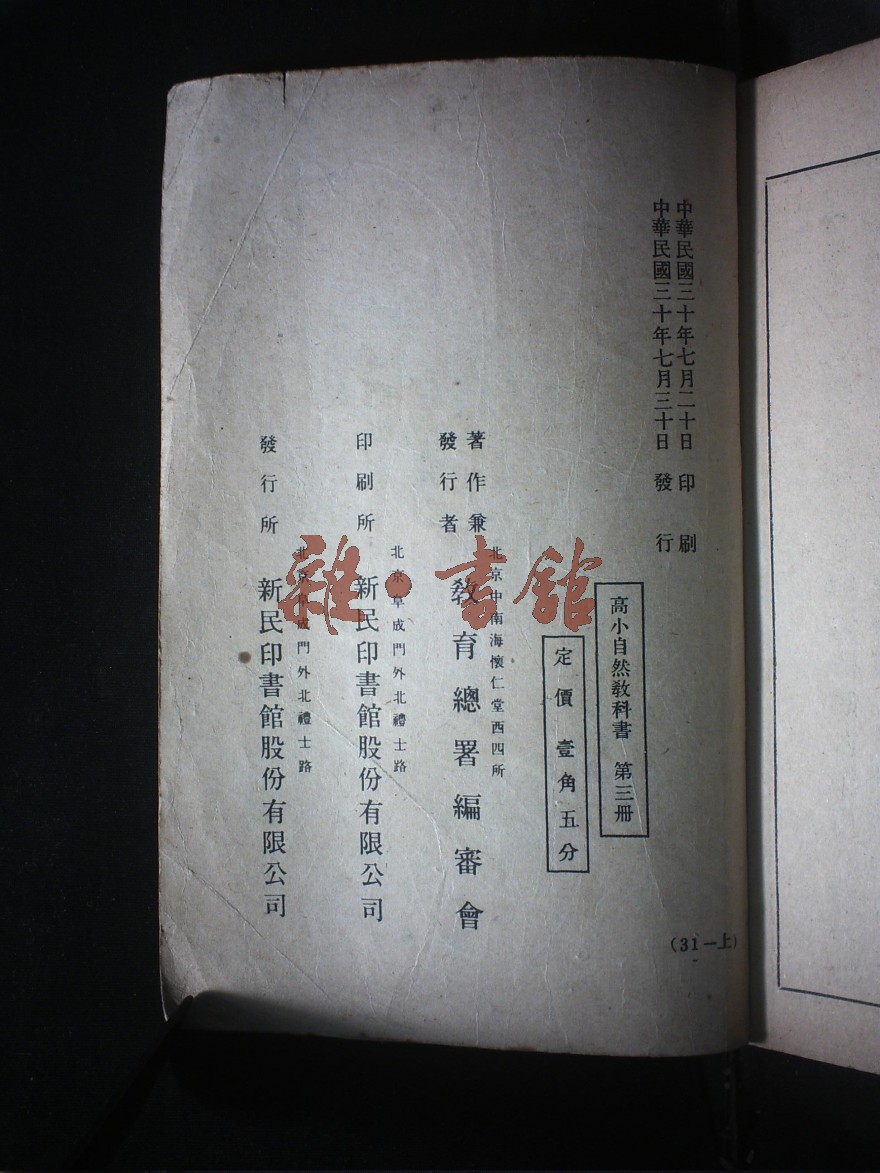 中華民國三十年七月二十日 印刷
中華民國三十年七月三十日 發行
高小自然教科書 第三冊
定價 壹角五分
北京中南海懷仁堂西四所
著作兼
發行者
教育總署編審會
北京阜成門外北禮士路
印刷所 新民印書館股份有限公司
北京阜成門外北禮士路
發行所 新民印書館股份有限公司
(31—上)
雜·書館